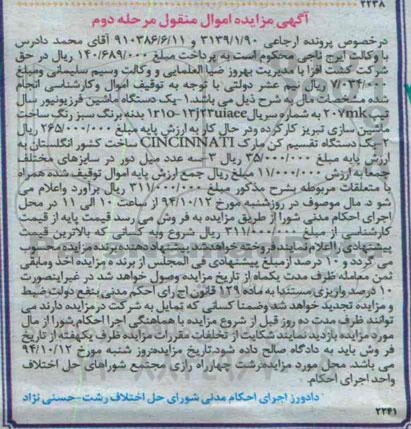 ۲۲۳۸
آگهی مزایده اموال منقول مرحله دوم
درخصوص پرونده ارجاعی ۳۱۳۹/۱/۹۰ و ۹۱۰۳۸۶/۶/۱۱ آقای محمد دادرس
با وکالت ایرج ناجی محکوم است به پرداخت مبلغ ۱۴۰/۶۸۹/۰۰۰ ریال در حق
شرکت کشت افزا با مدیریت بهروز ضیا العلمایی و وکالت وسیم سلیمانی ومبلغ
ریال نیم عشر دولتی با توجه به توقیف اموال وکارشناسی انجام
شده مشخصات مال به شرح ذیل می باشد.۱-یک دستگاه ماشین فرزیونیور سال
تیپ ۲۰۷mk به شماره سریال بدنه برنگ سبز رنگ ساخت
ماشین سازی تبریز کارکرده ودر حال کار به ارزش پایه مبلغ ۲۶۵/۰۰۰/۰۰۰ ریال
۲-یک دستگاه تقسیم کن مارک CINCINNATI ساخت کشور انگلستان به
ارزش پایه مبلغ ۳۵/۰۰۰/۰۰۰ ریال ۳-سه عدد میل دور در سایزهای مختلف
جمعا به ارزش ۱۱/۰۰۰/۰۰۰ مبلغ ریال جمع ارزش پایه اموال توقیف شده همراه
با متعلقات مربوطه بشرح مذکور مبلغ ۳۱۱/۰۰۰/۰۰۰ ریال برآورد واعلام می
شو د. مال موصوف در روزشنبه مورخ ۹۴/۱۰/۱۲ از ساعت ۱۰ الی ۱۱ در محل
اجرای احکام مدنی شورا از طریق مزایده به فر وش می رسد قیمت پایه از قیمت
کارشناسی از مبلغ ۳۱۱/۰۰۰/۰۰۰ ریال شروع وبه کسانی که بالاترین قیمت
پیشنهادی را اعلام نمایند فروخته خواهد شد.پیشنهاد دهنده برنده مزایده محسوب
می گردد و ۱۰ درصد از مبلغ پیشنهادی فی المجلس از برنده مزایده اخذ ومابقی
ثمن معامله ظرف مدت یکماه از تاریخ مزایده وصول خواهد شد در غیراینصورت
۱۰ درصد واریزی مستندا به ماده ۱۲۹ قانون اج رای احکم مدنی بنفع دولت ضبط
و مزایده تجدید خواهد شد وضمنا کسانی که تمایل به شرکت در مزایده دارند می
توانند ظرف مدت ده روز قبل از شروع مزایده با هماهنگی اجرا احکام شورا از مال
مورد مزایده بازدید نمایند.شکایت از تخلفات مقررات مزایده ظرف یکهفته از تاریخ
فر وش باید به دادگاه صالح داده شود.تاریخ مزایده:روز شنبه مورخ ۹۴/۱۰/۱۲
می باشد. محل مورد مزایده:رشت چهارراه رازی مجتمع شوراهای حل اختلاف
واحد اجرای احکام.
دادورز اجرای احکام مدنی شورای حل اختلاف رشت-حسنی نژاد
۲۲۴۱